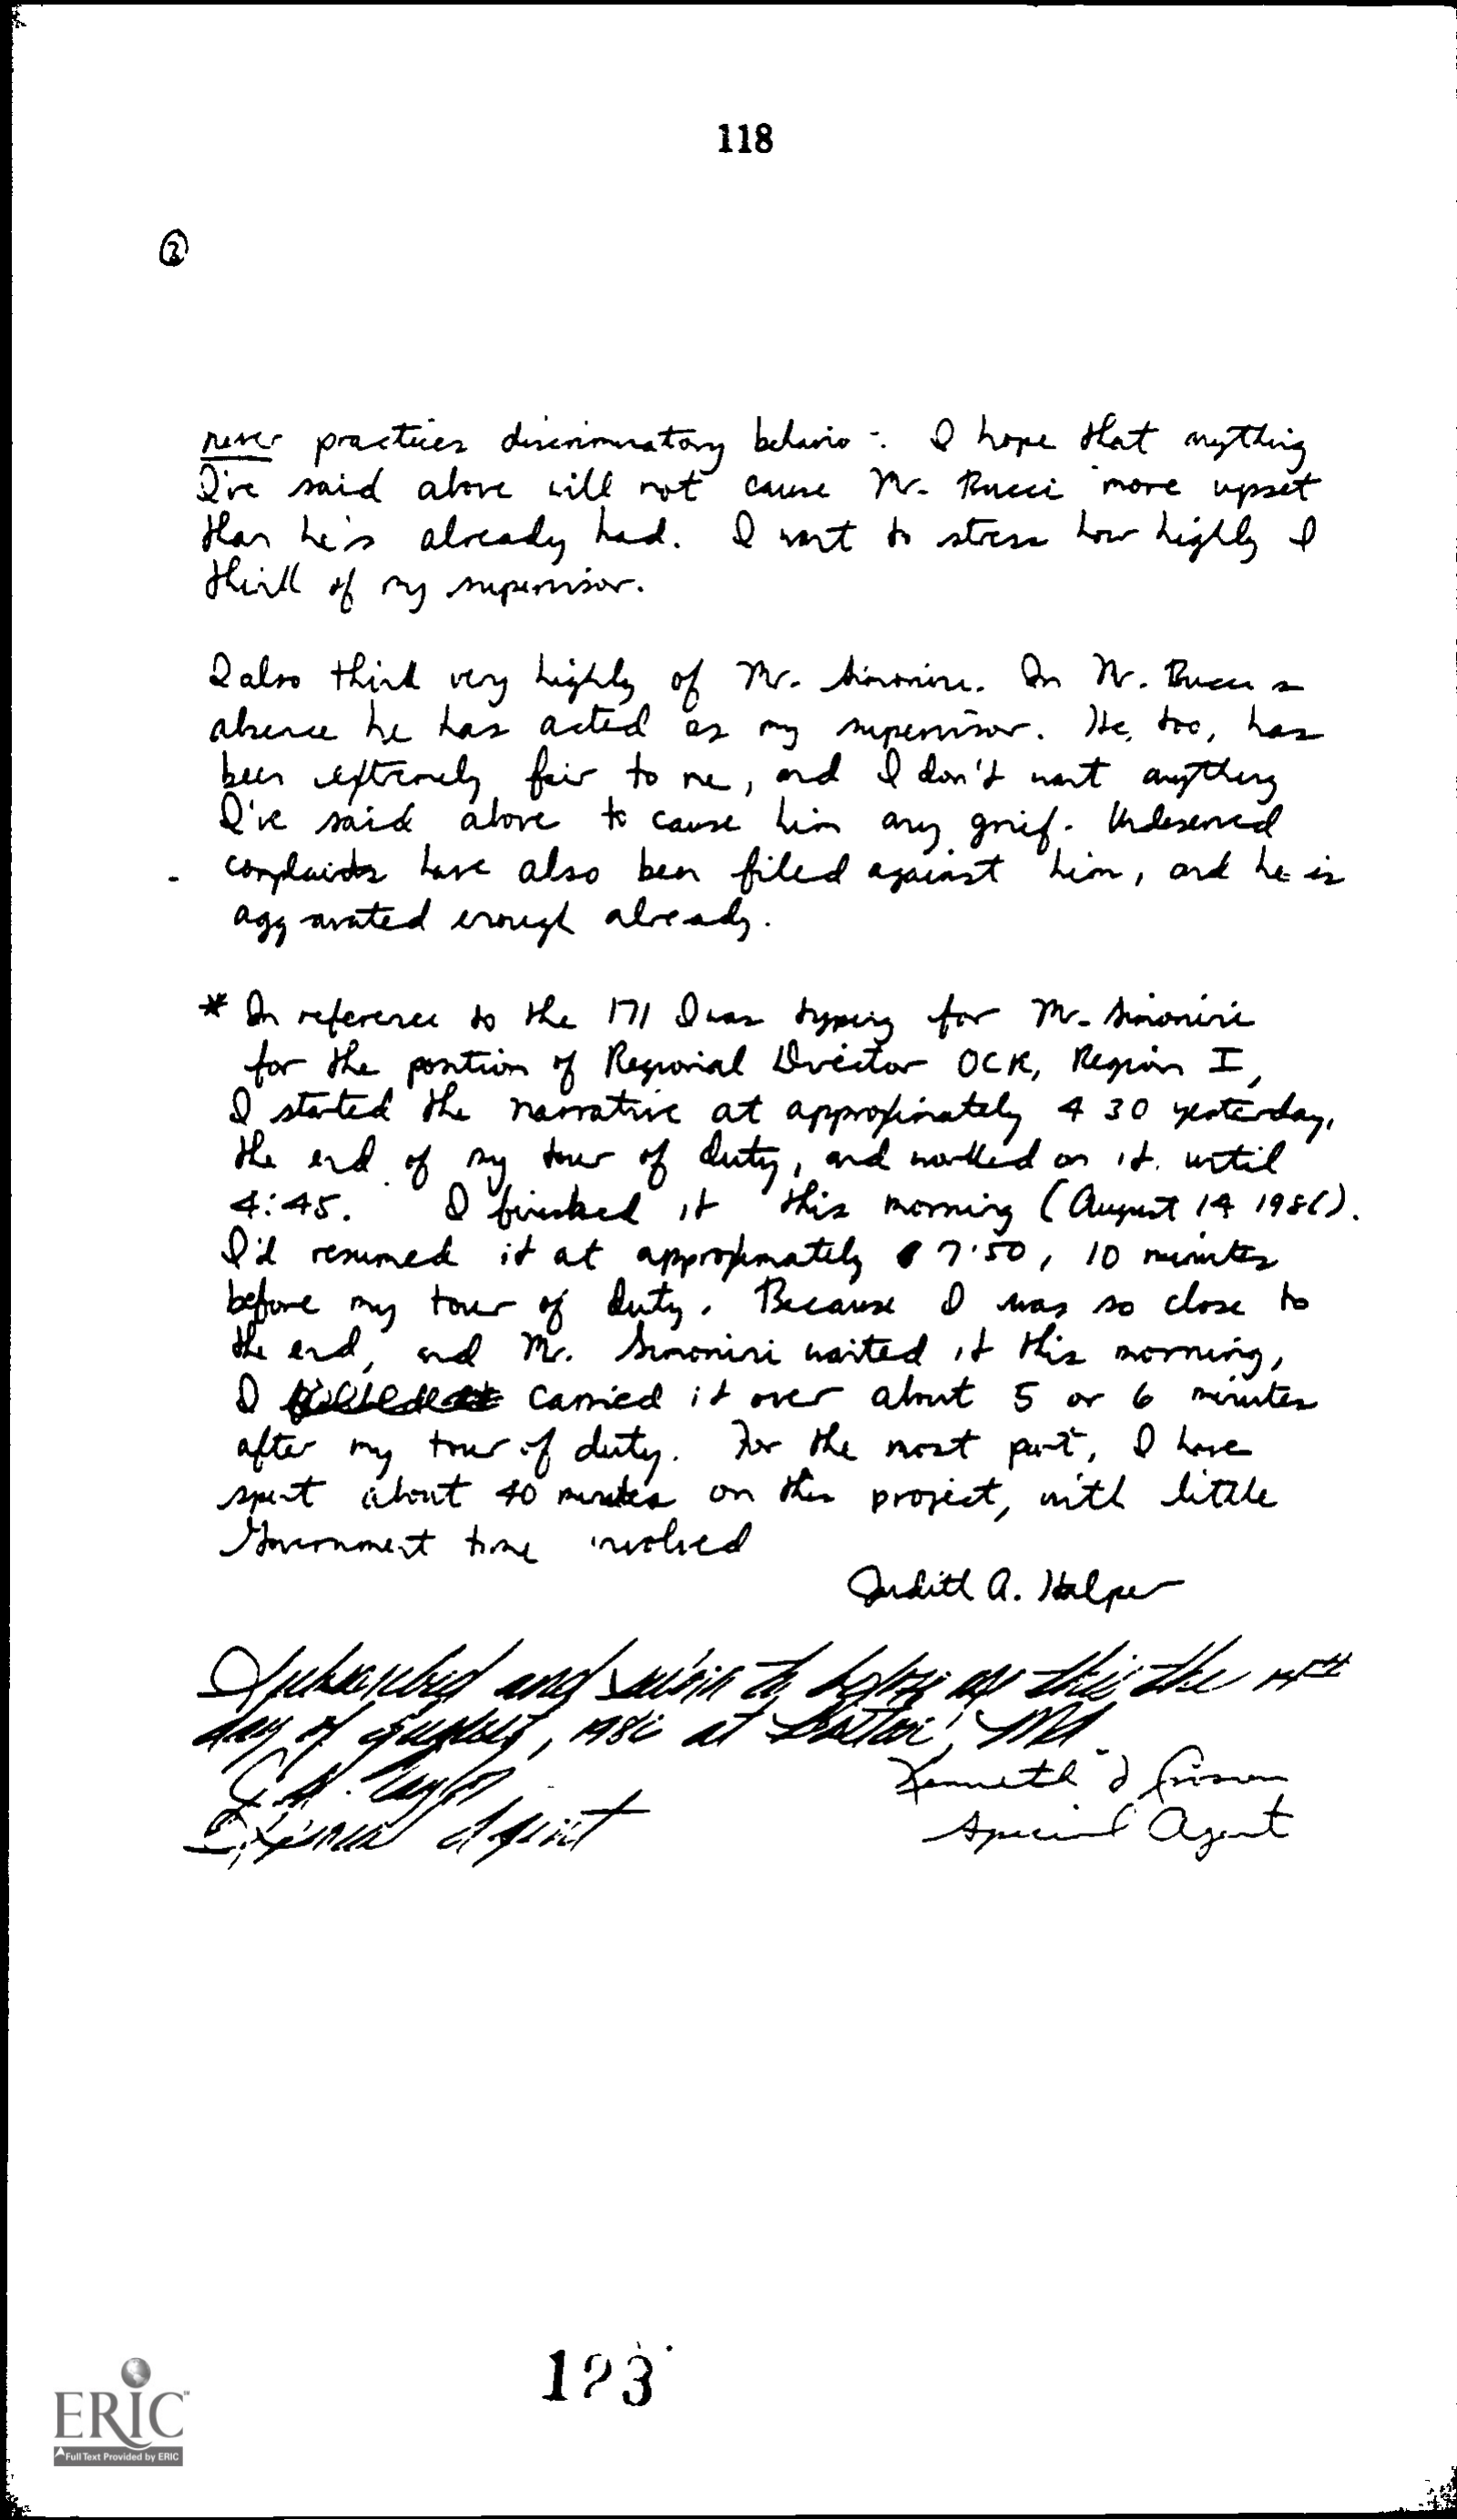 118
②
never practices discriminatory behavior. I hope that anything
I've said above will not cause Mr. Bucci more upset
than he's already had. I want to stress how highly I
think of my supervisor.
I also think very highly of Mr. Simonini. In Mr. Bucci's
absence he has acted as my supervisor. He, too, has
been extremely fair to me, and I don't want anything
I've said above to cause him any grief. Undeserved
complaints have also been filed against him, and he is
aggravated enough already.
* In reference to the 171 I was typing for Mr. Simonini
for the position of Regional Director OCR, Region I,
I started the narrative at approximately 4 30 yesterday,
the end of my tour of duty, and worked on it until
4:45. I finished it this morning (August 14 1986).
I'd resumed it at approximately 7:50, 10 minutes
before my tour of duty. Because I was so close to
the end, and Mr. Simonini wanted it this morning,
I carried it over about 5 or 6 minutes
after my tour of duty. For the most part, I have
spent about 40 minutes on this project, with little
Government time involved
Judith A. Halper
Subscribed and sworn to before me this the 14th
day of August, 1986 at Boston, MA
Kenneth
Special Agent
Special Agent
123
ERIC
Full Text Provided by ERIC